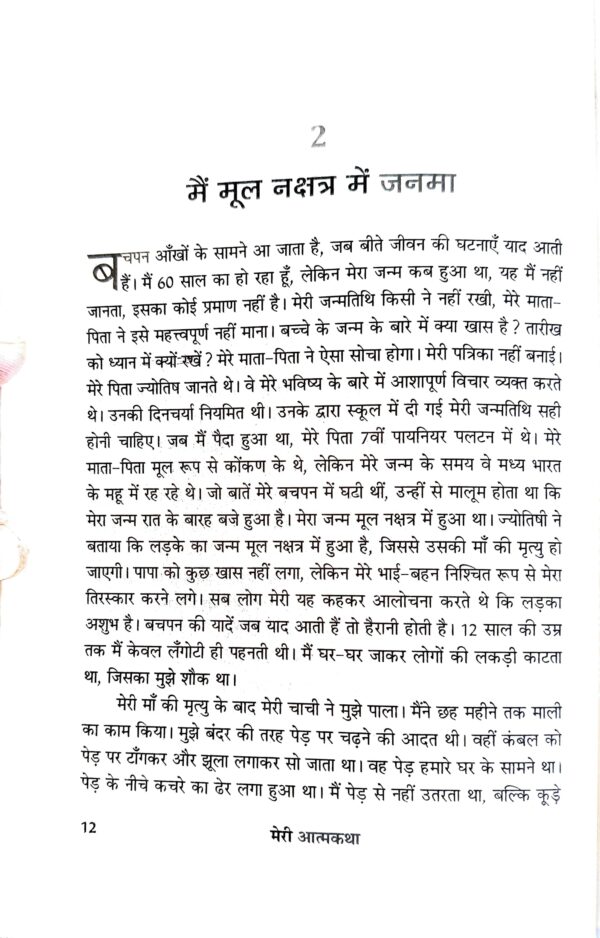 2
मैं मूल नक्षत्र में जनमा
बचपन आँखों के सामने आ जाता है, जब बीते जीवन की घटनाएँ याद आती
हैं। मैं 60 साल का हो रहा हूँ, लेकिन मेरा जन्म कब हुआ था, यह मैं नहीं
जानता, इसका कोई प्रमाण नहीं है। मेरी जन्मतिथि किसी ने नहीं रखी, मेरे माता-
पिता ने इसे महत्त्वपूर्ण नहीं माना। बच्चे के जन्म के बारे में क्या खास है? तारीख
को ध्यान में क्यों रखें? मेरे माता-पिता ने ऐसा सोचा होगा। मेरी पत्रिका नहीं बनाई।
मेरे पिता ज्योतिष जानते थे। वे मेरे भविष्य के बारे में आशापूर्ण विचार व्यक्त करते
थे। उनकी दिनचर्या नियमित थी। उनके द्वारा स्कूल में दी गई मेरी जन्मतिथि सही
होनी चाहिए। जब मैं पैदा हुआ था, मेरे पिता 7वीं पायनियर पलटन में थे। मेरे
माता-पिता मूल रूप से कोंकण के थे, लेकिन मेरे जन्म के समय वे मध्य भारत
के महू में रह रहे थे। जो बातें मेरे बचपन में घटी थीं, उन्हीं से मालूम होता था कि
मेरा जन्म रात के बारह बजे हुआ है। मेरा जन्म मूल नक्षत्र में हुआ था। ज्योतिषी ने
बताया कि लड़के का जन्म मूल नक्षत्र में हुआ है, जिससे उसकी माँ की मृत्यु हो
जाएगी। पापा को कुछ खास नहीं लगा, लेकिन मेरे भाई-बहन निश्चित रूप से मेरा
तिरस्कार करने लगे। सब लोग मेरी यह कहकर आलोचना करते थे कि लड़का
अशुभ है। बचपन की यादें जब याद आती हैं तो हैरानी होती है। 12 साल की उम्र
तक मैं केवल लँगोटी ही पहनती थी। मैं घर-घर जाकर लोगों की लकड़ी काटता
था, जिसका मुझे शौक था।
मेरी माँ की मृत्यु के बाद मेरी चाची ने मुझे पाला। मैंने छह महीने तक माली
का काम किया। मुझे बंदर की तरह पेड़ पर चढ़ने की आदत थी। वहीं कंबल को
पेड़ पर टाँगकर और झूला लगाकर सो जाता था। वह पेड़ हमारे घर के सामने था।
पेड़ के नीचे कचरे का ढेर लगा हुआ था। मैं पेड़ से नहीं उतरता था, बल्कि कूड़े
12
मेरी आत्मकथा